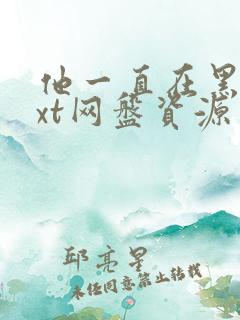 他一直在黑
xt网盘资源
邱亮星
未经同意禁止转载